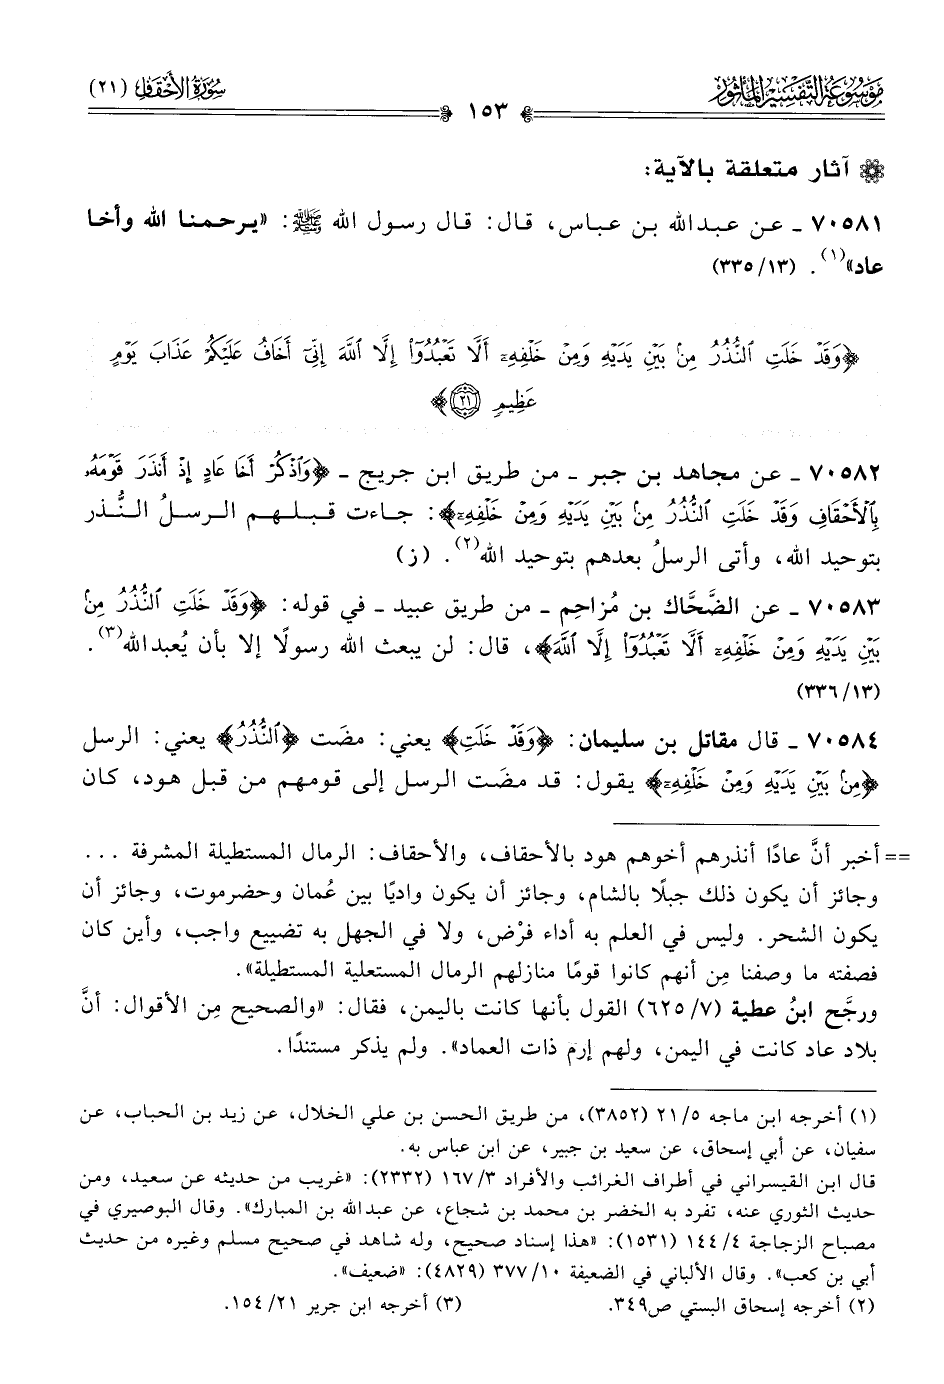 موسوعة التفسير المأثور
سورة الأحقاف (٢١)
١٥٣
آثار متعلقة بالآية:
٧٠٥٨١ - عن عبدالله بن عباس، قال: قال رسول الله ﷺ: «يرحمنا الله وأخا
عاد»(١). (٣٣٥/١٣)
﴿وَقَدْ خَلَتِ ٱلنُّذُرُ مِنۢ بَيْنِ يَدَيْهِ وَمِنْ خَلْفِهِۦٓ أَلَّا تَعْبُدُوٓا۟ إِلَّا ٱللَّهَ إِنِّىٓ أَخَافُ عَلَيْكُمْ عَذَابَ يَوْمٍ
عَظِيمٍ ٢١﴾
٧٠٥٨٢ - عن مجاهد بن جبر - من طريق ابن جريج - ﴿وَٱذْكُرْ أَخَا عَادٍ إِذْ أَنذَرَ قَوْمَهُۥ
بِٱلْأَحْقَافِ وَقَدْ خَلَتِ ٱلنُّذُرُ مِنۢ بَيْنِ يَدَيْهِ وَمِنْ خَلْفِهِۦٓ﴾: جاءت قبلهم الرسلُ النُّذر
بتوحيد الله، وأتى الرسلُ بعدهم بتوحيد الله(٢). (ز)
٧٠٥٨٣ - عن الضَّحَّاك بن مُزاحِم - من طريق عبيد - في قوله: ﴿وَقَدْ خَلَتِ ٱلنُّذُرُ مِنۢ
بَيْنِ يَدَيْهِ وَمِنْ خَلْفِهِۦٓ أَلَّا تَعْبُدُوٓا۟ إِلَّا ٱللَّهَ﴾، قال: لن يبعث الله رسولًا إلا بأن يُعبدالله(٣).
(٣٣٦/١٣)
٧٠٥٨٤ - قال مقاتل بن سليمان: ﴿وَقَدْ خَلَتِ﴾ يعني: مضَت ﴿ٱلنُّذُرُ﴾ يعني: الرسل
﴿مِنۢ بَيْنِ يَدَيْهِ وَمِنْ خَلْفِهِۦٓ﴾ يقول: قد مضَت الرسل إلى قومهم من قبل هود، كان
== أخبر أنَّ عادًا أنذرهم أخوهم هود بالأحقاف، والأحقاف: الرمال المستطيلة المشرفة ...
وجائز أن يكون ذلك جبلًا بالشام، وجائز أن يكون واديًا بين عُمان وحضرموت، وجائز أن
يكون الشحر. وليس في العلم به أداء فرْض، ولا في الجهل به تضييع واجب، وأين كان
فصفته ما وصفنا مِن أنهم كانوا قومًا منازلهم الرمال المستعلية المستطيلة».
ورجَّح ابنُ عطية (٦٢٥/٧) القول بأنها كانت باليمن، فقال: «والصحيح مِن الأقوال: أنَّ
بلاد عاد كانت في اليمن، ولهم إرم ذات العماد». ولم يذكر مستندًا.
(١) أخرجه ابن ماجه ٢١/٥ (٣٨٥٢)، من طريق الحسن بن علي الخلال، عن زيد بن الحباب، عن
سفيان، عن أبي إسحاق، عن سعيد بن جبير، عن ابن عباس به.
قال ابن القيسراني في أطراف الغرائب والأفراد ١٦٧/٣ (٢٣٣٢): «غريب من حديثه عن سعيد، ومن
حديث الثوري عنه، تفرد به الخضر بن محمد بن شجاع، عن عبدالله بن المبارك». وقال البوصيري في
مصباح الزجاجة ١٤٤/٤ (١٥٣١): «هذا إسناد صحيح، وله شاهد في صحيح مسلم وغيره من حديث
أبي بن كعب». وقال الألباني في الضعيفة ٣٧٧/١٠ (٤٨٢٩): «ضعيف».
(٢) أخرجه إسحاق البستي ص٣٤٩. (٣) أخرجه ابن جرير ١٥٤/٢١.